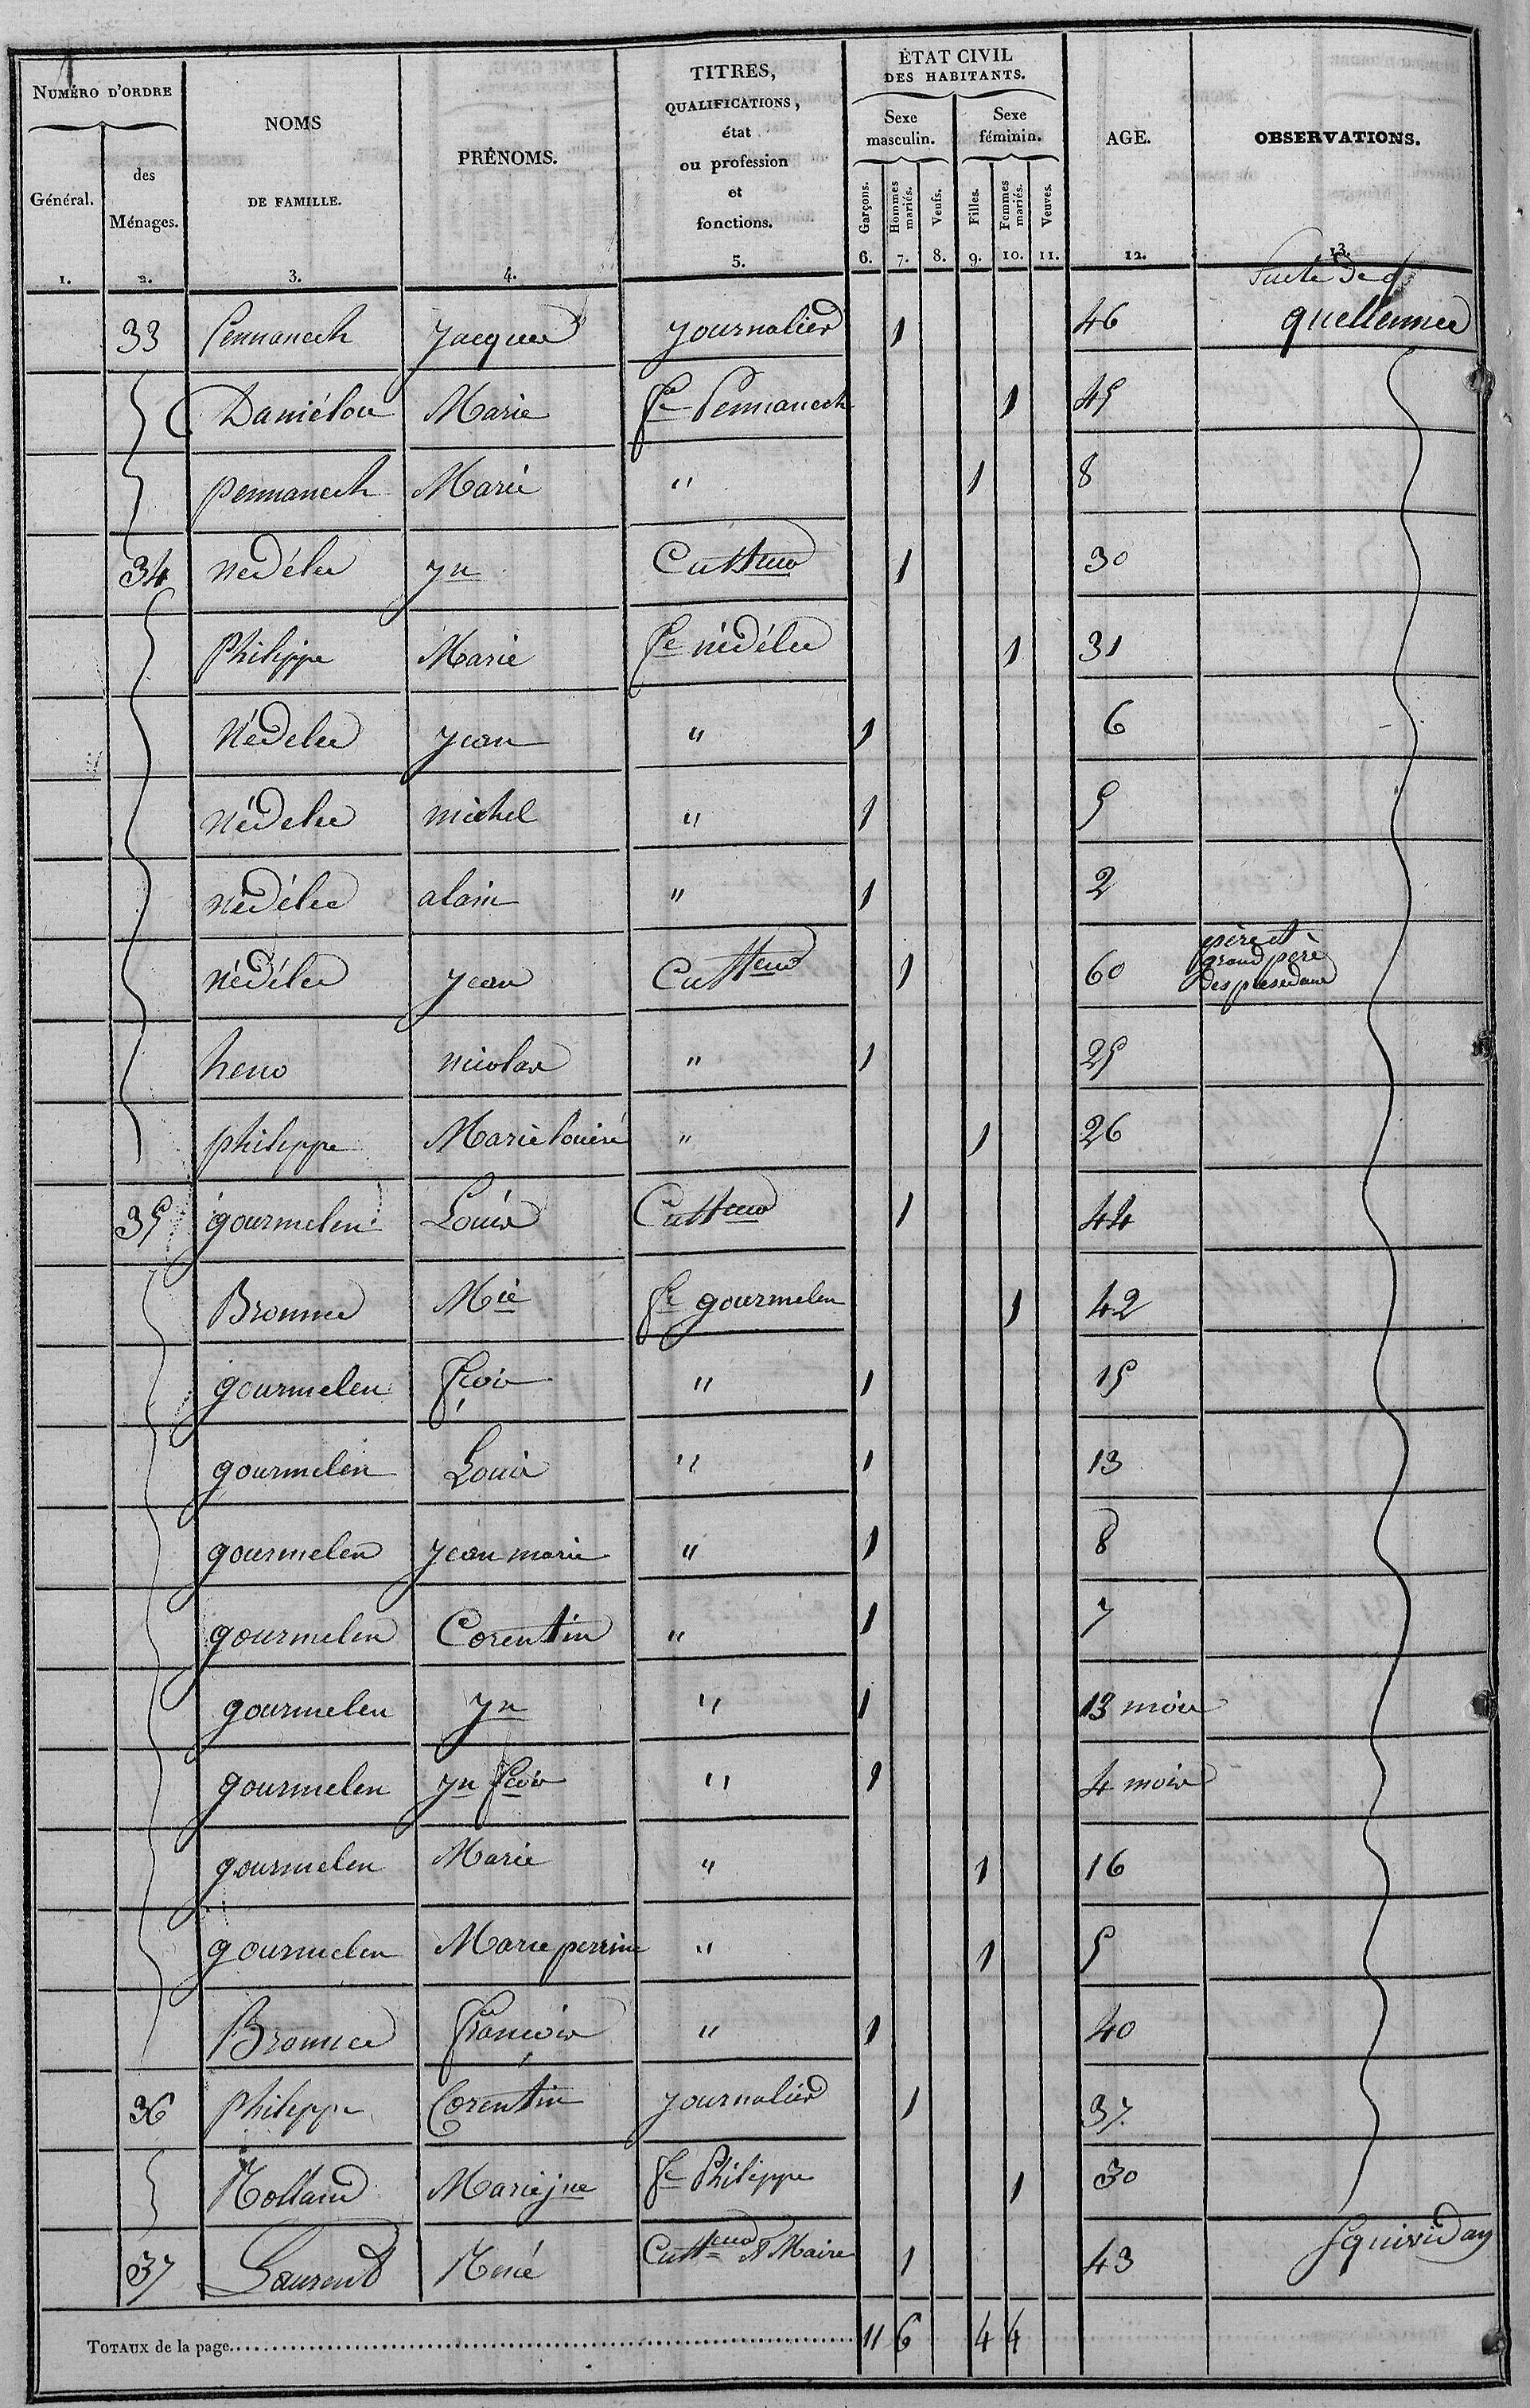 NUMÉRO D'ORDRE
Général.
des Ménages.
NOMS
DE FAMILLE.
PRÉNOMS.
TITRES,
QUALIFICATIONS,
état
ou profession
et
fonctions.
ÉTAT CIVIL
DES HABITANTS.
Sexe masculin.
Sexe féminin.
Garçons.
Hommes mariés.
Veufs.
Filles.
Femmes mariés.
Veuves.
AGE.
OBSERVATIONS.
1. 2. 3. 4. 5. 6. 7. 8. 9. 10. 11. 12. 13.
Suite de
33 Pennanech Jacques journalier 1 46 quellennec
Daniélou Marie fe Pennanech 1 45
pennanech Marie " 1 8
34 nédélec Jn Cultteur 1 30
Philippe Marie fe nédélec 1 31
Nédelec jean " 1 6
nédelec michel " 1 5
nédélec alain " 1 2
nédélec jean Cultteur 1 60 père et grand père des précédans
heno nicolas " 1 25
philippe Marie louise " 1 26
35 gourmelen Louis Cultteur 1 44
Bronnec Mie fe gourmelen 1 42
gourmelen fçois " 1 15
gourmelen Louis " 1 13
gourmelen jean marie " 1 8
gourmelen Corentin " 1 7
gourmelen Jn " 1 13 mois
gourmelen Jn fçois " 1 4 mois
gourmelen Marie " 1 16
gourmelen Marie perrine " 1 5
Bronnec François " 1 40
36 Philippe Corentin journalier 1 37
Rolland Marie jne fe Philippe 1 30
37 Laurent René Cultteur & Maire 1 43 Squividan
TOTAUX de la page 11 6 4 4